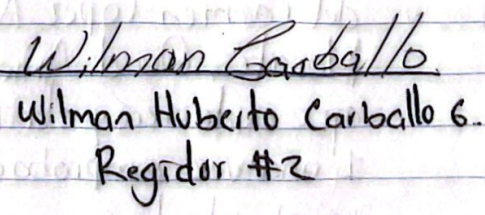 Wilman Carballo
Wilman Huberto Carballo G.
Regidor #2